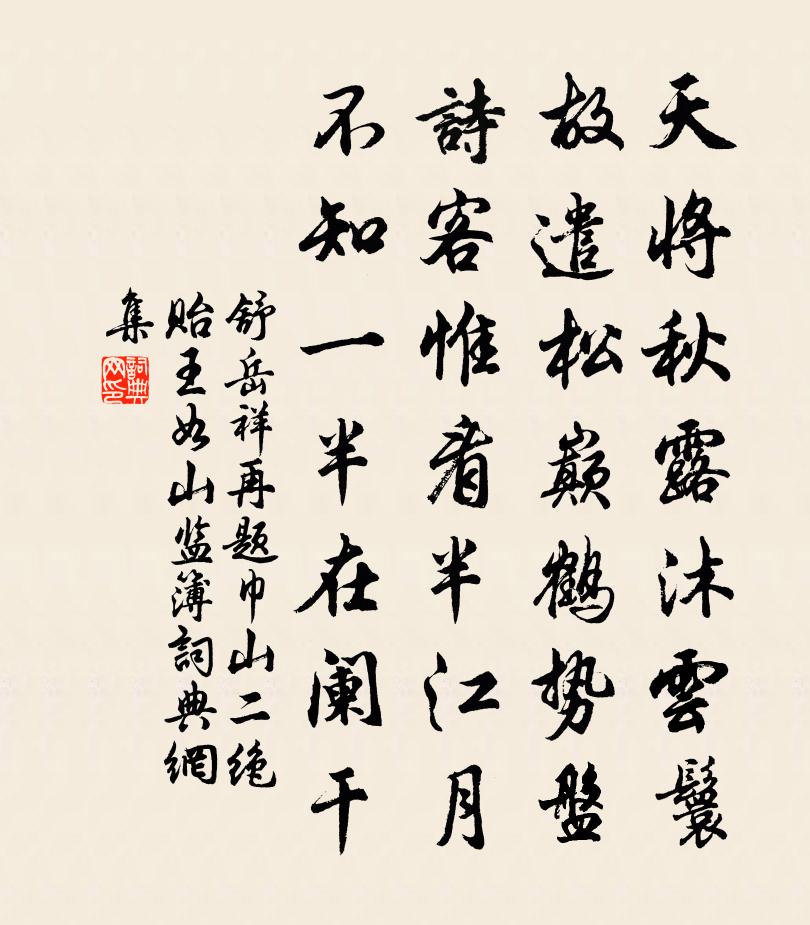 天將秋露沐雲鬟
故遣松巔鶴勢盤
詩客惟看半江月
不知一半在阑干
舒岳祥再题巾山二绝
贻王如山监簿詞典網
集
詞典
网印